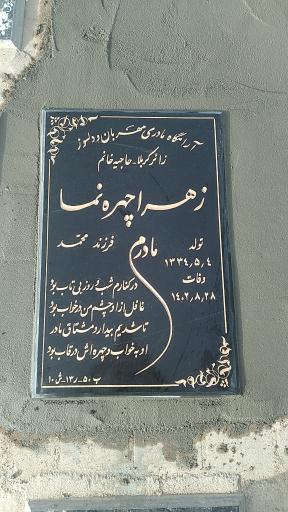 آرامگاه مادری مهربان و دلسوز
زائر کربلا - حاجیه خانم
زهرا چهره نما
مادرم فرزند محمد
تولد
۱۳۳۴٫۵٫۴
وفات
۱۴۰۲٫۸٫۲۸
در کنارم شب و روز بی تاب بود
غافل از او چشم من در خواب بود
تا شدیم بیدار و مشتاق مادر
او به خواب و چهره اش در قاب بود
ب ۵۰-ر۱۳-ش۱۰